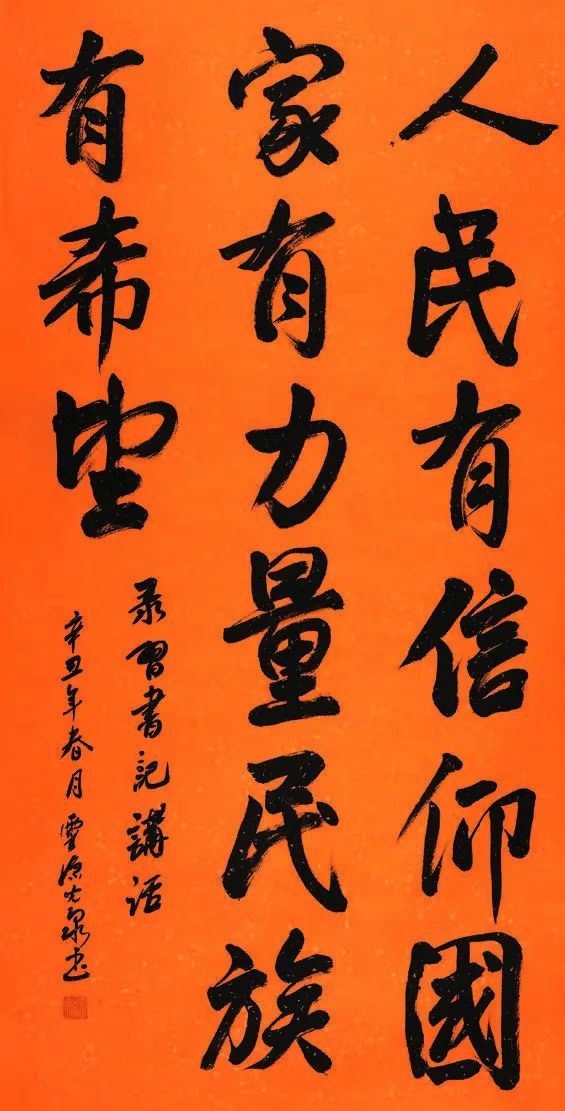 人民有信仰國
家有力量民族
有希望
录習書記講话
辛丑年春月